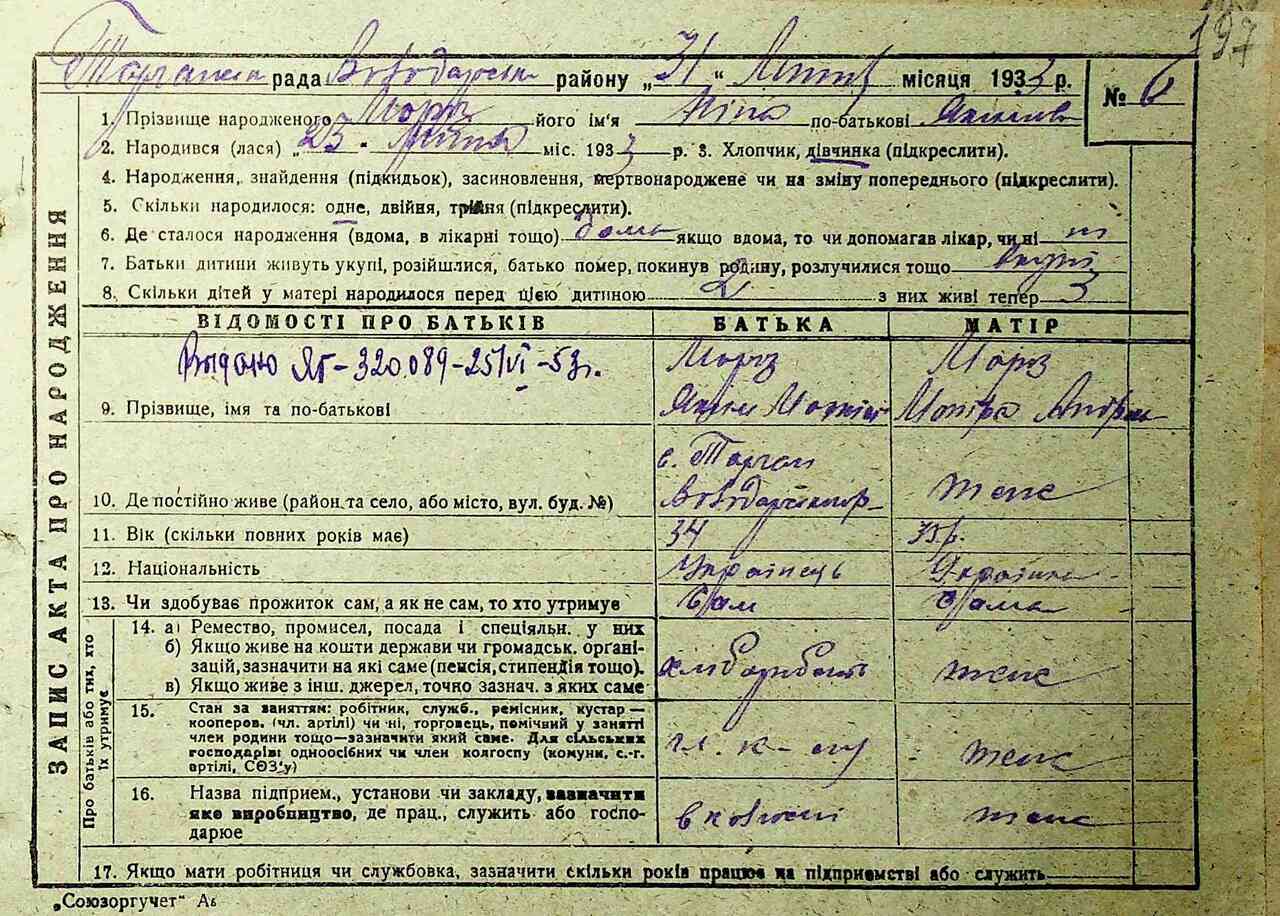 197
рада Володарськ району „31“ Липня місяця 1933 р. № 6
1. Прізвище народженого Мороз його ім'я Ніна по-батькові Якимова
2. Народився (лася) „25“ Липня міс. 1933 р. 3. Хлопчик, дівчинка (підкреслити).
4. Народження, знайдення (підкидьок), засиновлення, мертвонароджене чи на зміну попереднього (підкреслити).
5. Скільки народилося: одне, двійня, трійня (підкреслити).
6. Де сталося народження (вдома, в лікарні тощо) дома якщо вдома, то чи допомагав лікар, чи ні ні
7. Батьки дитини живуть укупі, розійшлися, батько помер, покинув родину, розлучилися тощо вкупі
8. Скільки дітей у матері народилося перед цією дитиною 2 з них живі тепер 3
ЗАПИС АКТА ПРО НАРОДЖЕННЯ
ВІДОМОСТІ ПРО БАТЬКІВ БАТЬКА МАТІР
Видано ЯБ-320.089-25/VI-53г. Мороз Мороз
9. Прізвище, імя та по-батькові Яким Мотра
с. Торчан
10. Де постійно живе (район та село, або місто, вул. буд. №) теж
11. Вік (скільки повних років має) 34
12. Національність Українець Українка
13. Чи здобуває прожиток сам, а як не сам, то хто утримує Сам Сама
Про батьків або тих, хто
їх утримує
14. а) Ремество, промисел, посада і спеціяльн. у них
б) Якщо живе на кошти держави чи громадськ. органі-
зацій, зазначити на які саме (пенсія, стипендія тощо). хлібороб теж
в) Якщо живе з інш. джерел, точно зазнач. з яких саме
15. Стан за заняттям: робітник, служб., ремісник, кустар —
кооперов. (чл. артілі) чи ні, торговець, помічний у занятті
член родини тощо—зазначити який саме. Для сільських
господарів: одноосібних чи член колгоспу (комуни, с.-г. чл. к-пу теж
артілі, СОЗ'у)
16. Назва підприєм., установи чи закладу, зазначити
яке виробництво, де прац., служить або госпо- в колгоспі теж
дарює
17. Якщо мати робітниця чи службовка, зазначити скільки років працює на підприємстві або служить
„Союзоргучет“